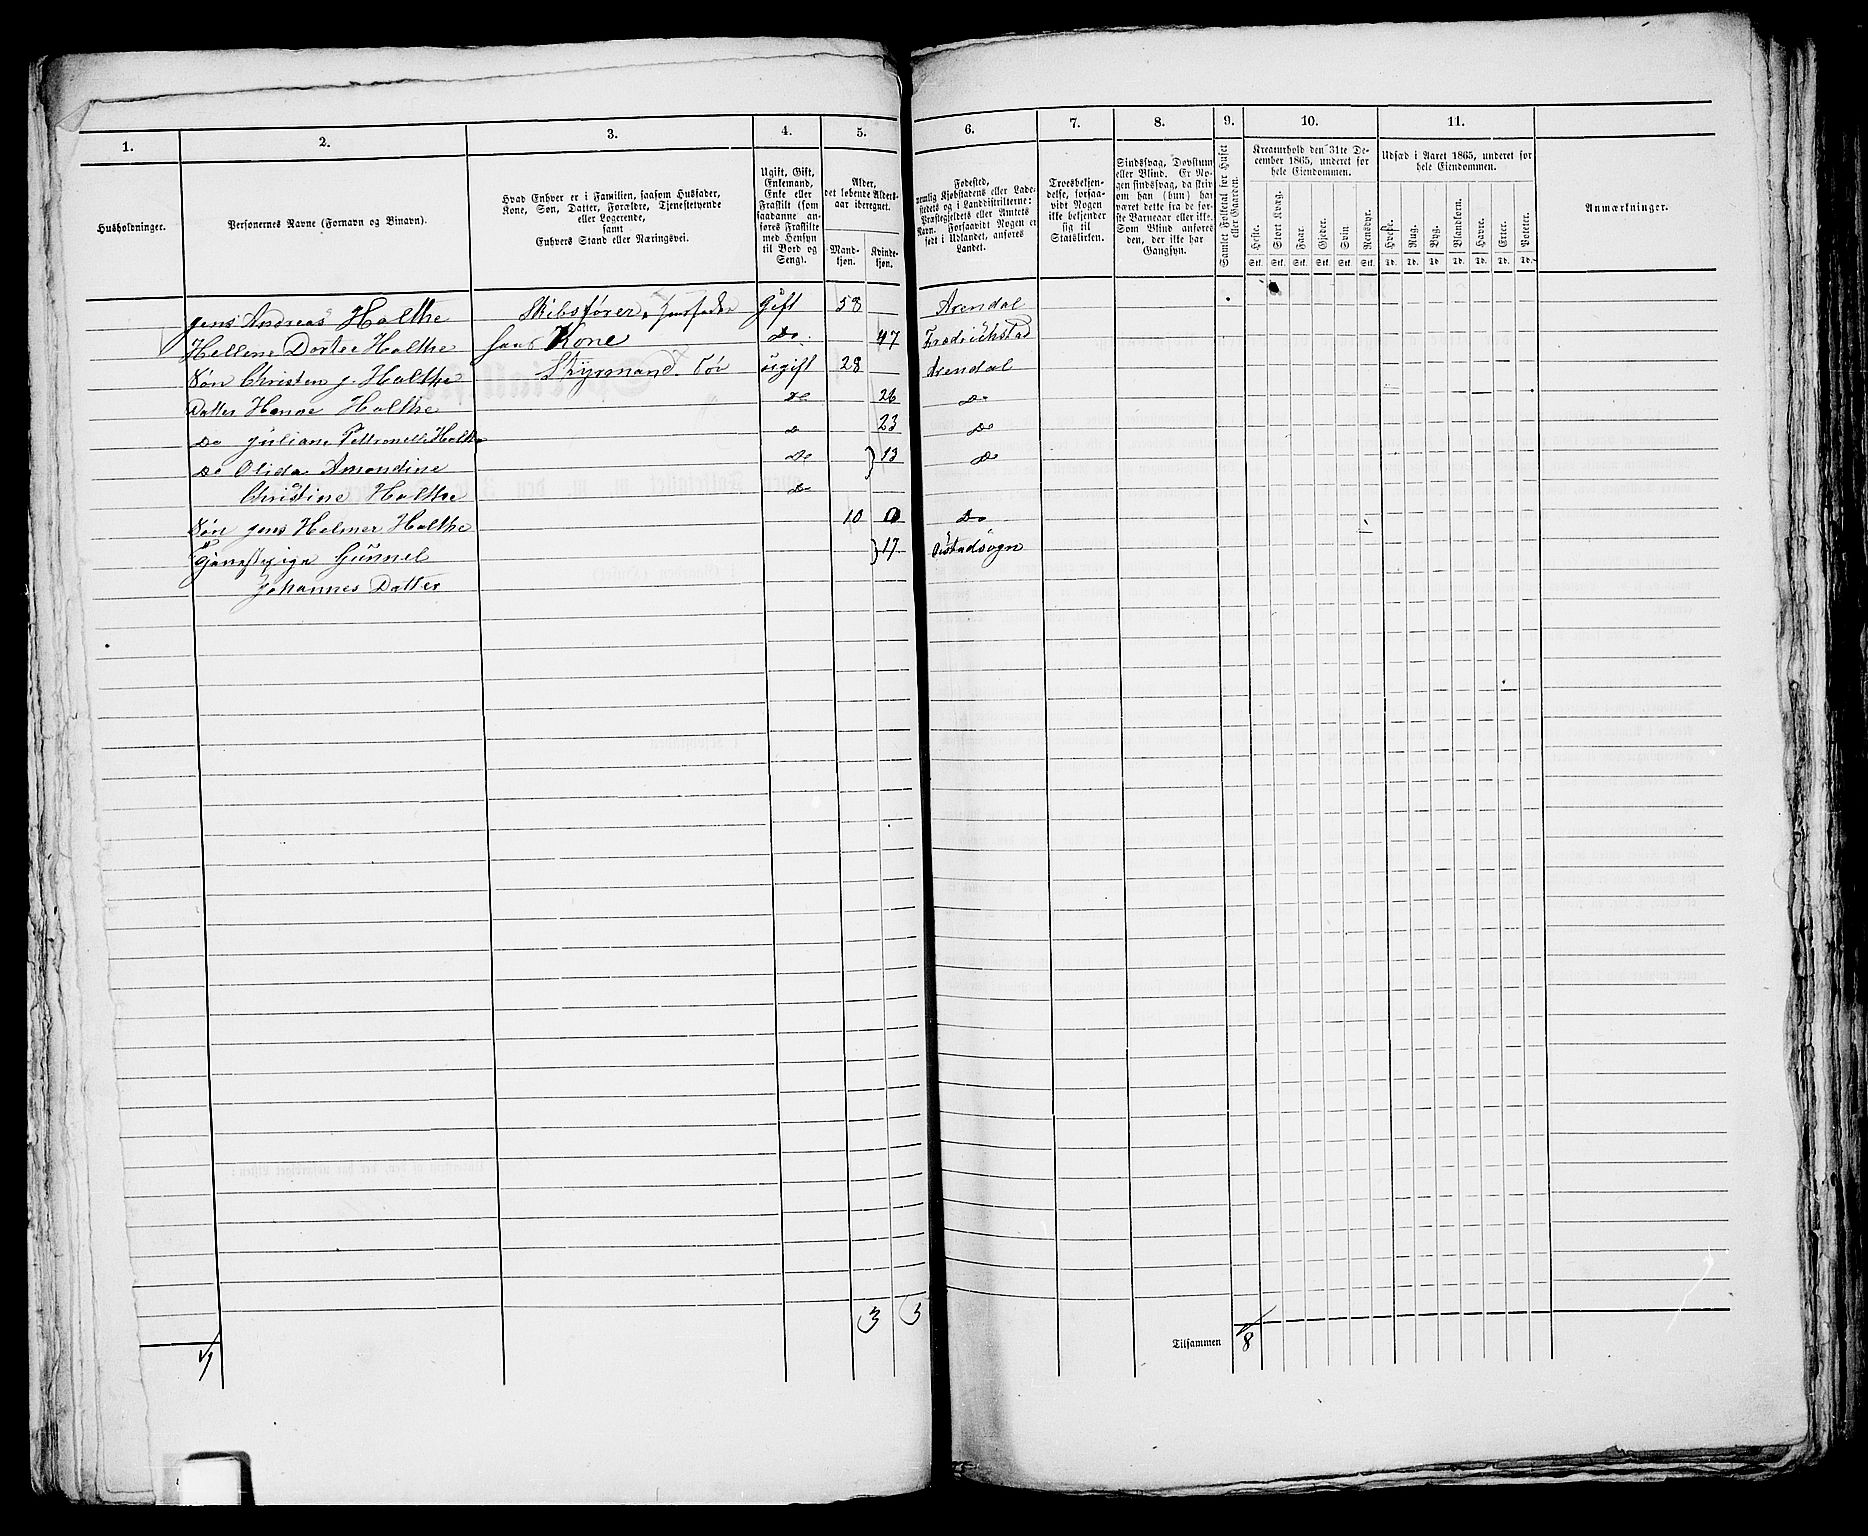 1. 2. 3. 4. 5. 6. 7. 8. 9. 10. 11.
Husholdninger.
Personernes Navne (Fornavn og Binavn).
Hvad Enhver er i Familien, saasom Husfader,
Kone, Søn, Datter, Forældre, Tjenestetyende
eller Logerende,
samt
Enhvers Stand eller Næringsvei.
Ugift, Gift,
Enkemand,
Enke eller
Fraskilt (som
saadanne an-
føres Fraskilte
med Hensyn
til Bord og
Seng).
Alder,
det løbende Alders-
aar iberegnet.
Mand-
kjøn.
Kvinde-
kjøn.
Fødested,
nemlig Kjøbstadens eller Lade-
stedets og i Landdistrikterne:
Præstegjeldets eller Amtets
Navn. Forsaavidt Nogen er
født i Udlandet, anføres
Landet.
Troesbekjen-
delse, forsaa-
vidt Nogen
ikke bekjender
sig til
Statskirken.
Sindssvag, Døvstum
eller Blind. Er No-
gen sindssvag, da skriv
om han (hun) har
været dette fra de før-
ste Barneaar eller ikke.
Som Blind anføres
den, der ikke har
Gangsyn.
Samlet Folketal for Huset
eller Gaarden.
Kreaturhold den 31te De-
cember 1865, underet for
hele Eiendommen.
Heste. Stort Kvæg. Faar. Gjeder. Svin. Rensdyr.
Stk. Stk. Stk. Stk. Stk. Stk.
Udsæd i Aaret 1865, underet for
hele Eiendommen.
Hvede. Rug. Byg. Blandkorn. Havre. Erter. Poteter.
Td. Td. Td. Td. Td. Td. Td.
Anmærkninger.
Jens Andreas Holthe Skibsfører, Huusfader Gift 58 Arendal
Hellene Dortea Holthe hans Kone Do 47 Fredrichstad
Søn Christen J. Holthe Styrmand. ugift 28 Arendal
Datter Hanne Holthe Do 26 Do
Do Juliane Petronelle Holthe Do 23 Do
Do Olida Amondine Do 13 Do
Christine Holthe Do
Søn Jens Helmer Holthe 10 Do
Tjenestepige Gunnel 17 Øiestadsogn
Johannes Datter
1 3 5
Tilsammen 8